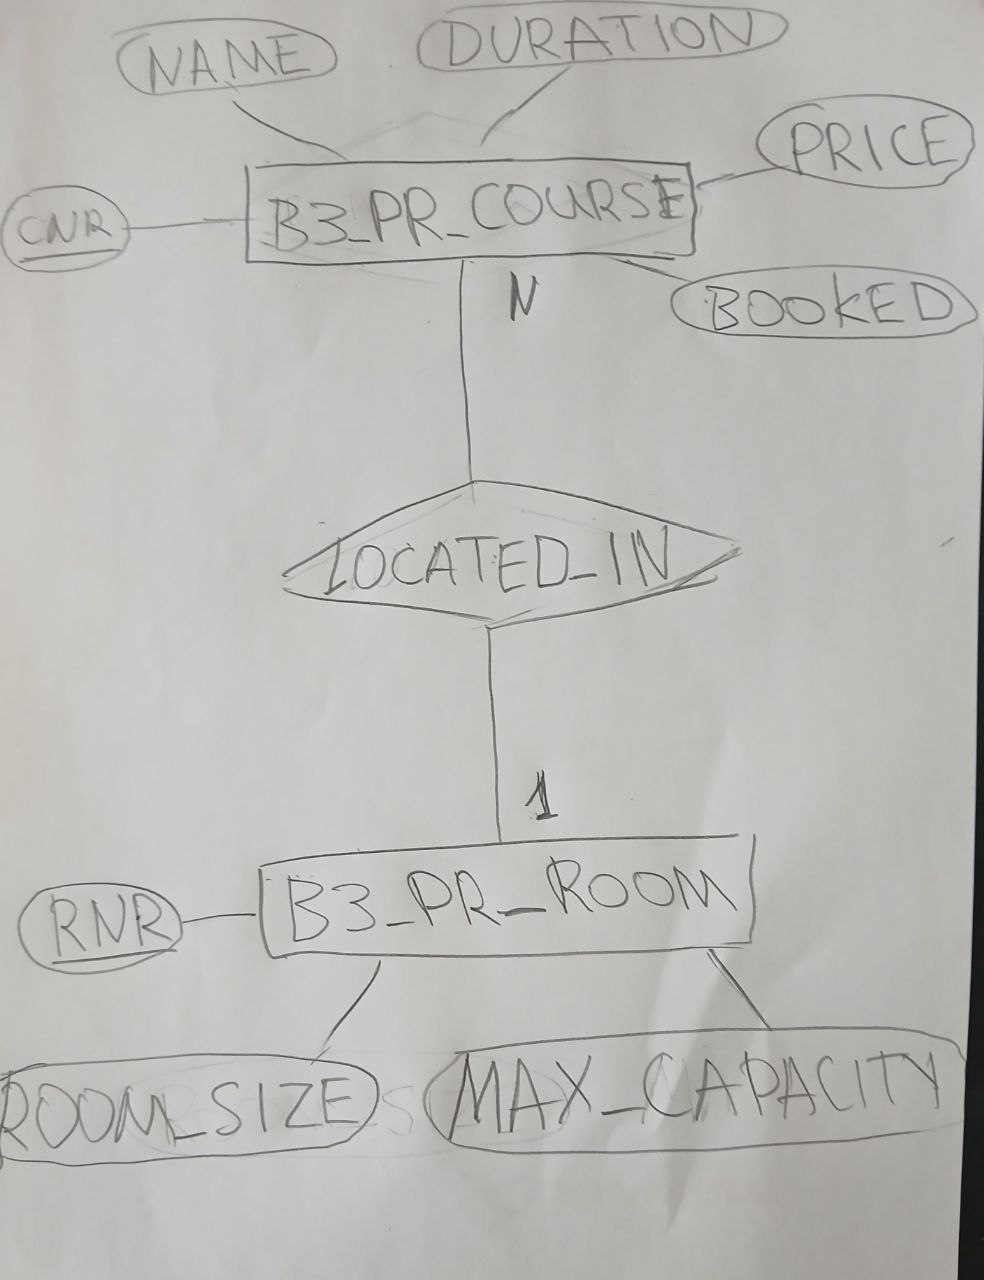 NAME
DURATION
PRICE
CNR
B3_PR_COURSE
BOOKED
N
LOCATED_IN
1
RNR
B3_PR_ROOM
ROOM_SIZE
MAX_CAPACITY